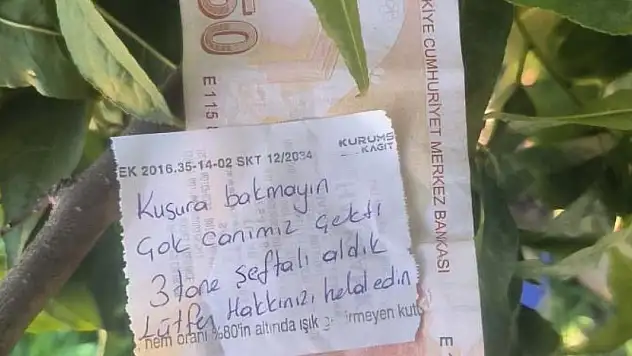 50
E 115
KİYE CUMHURİYET MERKEZ BANKASI
E 1
EK 2016.35-14-02 SKT 12/2034
KURUMS
KAGIT
Kusura bakmayın
Çok canımız çekti
3 tane şeftali aldık
Lütfen Hakkınızı helal edin
nem oranı %80'in altında ışık g irmeyen kutu